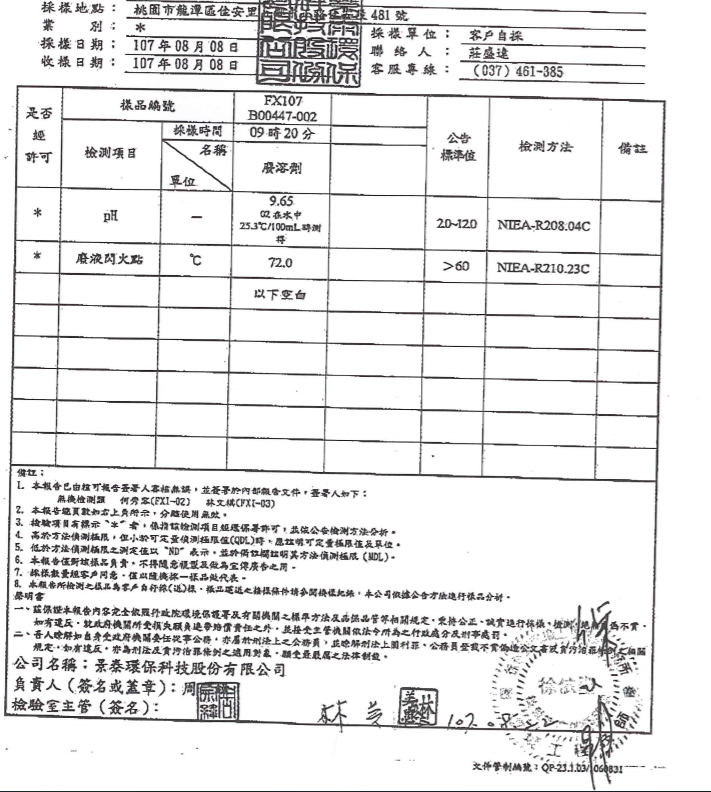 採樣地點：桃園市龍潭區佳安里 481 號
業 別：*
採樣單位：客戶自採
採樣日期：107 年 08 月 08 日
聯絡人：莊盛達
收樣日期：107 年 08 月 08 日
客服專線：(037) 461-385
是否經許可
樣品編號
FX107
B00447-002
公告標準值
檢測方法
備註
檢測項目
採樣時間
09 時 20 分
名稱
單位
廢溶劑
* pH － 9.65
02 在水中
25.3℃/100mL 時測得
2.0~12.0 NIEA-R208.04C
* 廢液閃火點 ℃ 72.0 ＞60 NIEA-R210.23C
以下空白
備註：
1. 本報告已由核可報告簽署人審核無誤，並簽署於內部報告文件，簽署人如下：
無機檢測類 何秀容(FXI-02) 林文棋(FXI-03)
2. 本報告總頁數如右上角所示，分離使用無效。
3. 檢驗項目有標示〝*〞者，係指該檢測項目經環保署許可，並依公告檢測方法分析。
4. 高於方法偵測極限，但小於可定量偵測極限值(QDL)時，應註明可定量極限值及單位。
5. 低於方法偵測極限之測定值以〝ND〞表示，並於備註欄註明其方法偵測極限 (MDL)。
6. 本報告僅對該樣品負責，不得隨意複製及做為宣傳廣告之用。
7. 採樣數量經客戶同意，僅以隨機採一樣品做代表。
8. 本報告所檢測之樣品為客戶自行採(送)樣，樣品運送之操樣條件請參閱採樣紀錄，本公司依據公告方法進行樣品分析。
聲明書
一、茲保證本報告內容完全依照行政院環境保護署及有關機關之標準方法及品保品管等相關規定，秉持公正、誠實進行採樣、檢測
如有違反，就政府機關所受損失願負連帶賠償責任之外，並接受主管機關依法令所為之行政處分及刑事處罰。
二、吾人瞭解如自身受政府機關委任從事公務，亦屬於刑法上之公務員，並瞭解刑法上圖利罪、公務員登載不實偽造公文書
規定，如有違反，亦為刑法及貪污治罪條例之適用對象，願受最嚴厲之法律制裁。
公司名稱：景泰環保科技股份有限公司
負責人（簽名或蓋章）：周
檢驗室主管（簽名）：
文件管制編號：QP-23.1.03/ 060831